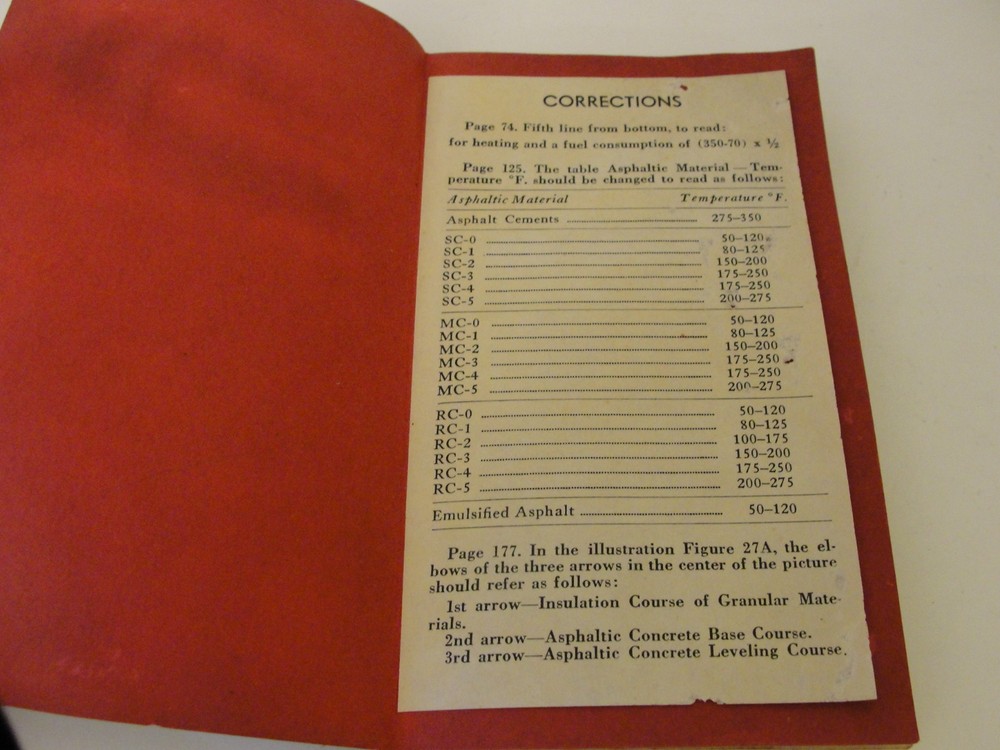 CORRECTIONS
Page 74. Fifth line from bottom, to read:
for heating and a fuel consumption of (350-70) x ½
Page 125. The table Asphaltic Material — Tem-
perature °F. should be changed to read as follows:
Asphaltic Material Temperature °F.
Asphalt Cements 275–350
SC-0 50–120
SC-1 80–125
SC-2 150–200
SC-3 175–250
SC-4 175–250
SC-5 200–275
MC-0 50–120
MC-1 80–125
MC-2 150–200
MC-3 175–250
MC-4 175–250
MC-5 200–275
RC-0 50–120
RC-1 80–125
RC-2 100–175
RC-3 150–200
RC-4 175–250
RC-5 200–275
Emulsified Asphalt 50–120
Page 177. In the illustration Figure 27A, the el-
bows of the three arrows in the center of the picture
should refer as follows:
1st arrow—Insulation Course of Granular Mate-
rials.
2nd arrow—Asphaltic Concrete Base Course.
3rd arrow—Asphaltic Concrete Leveling Course.